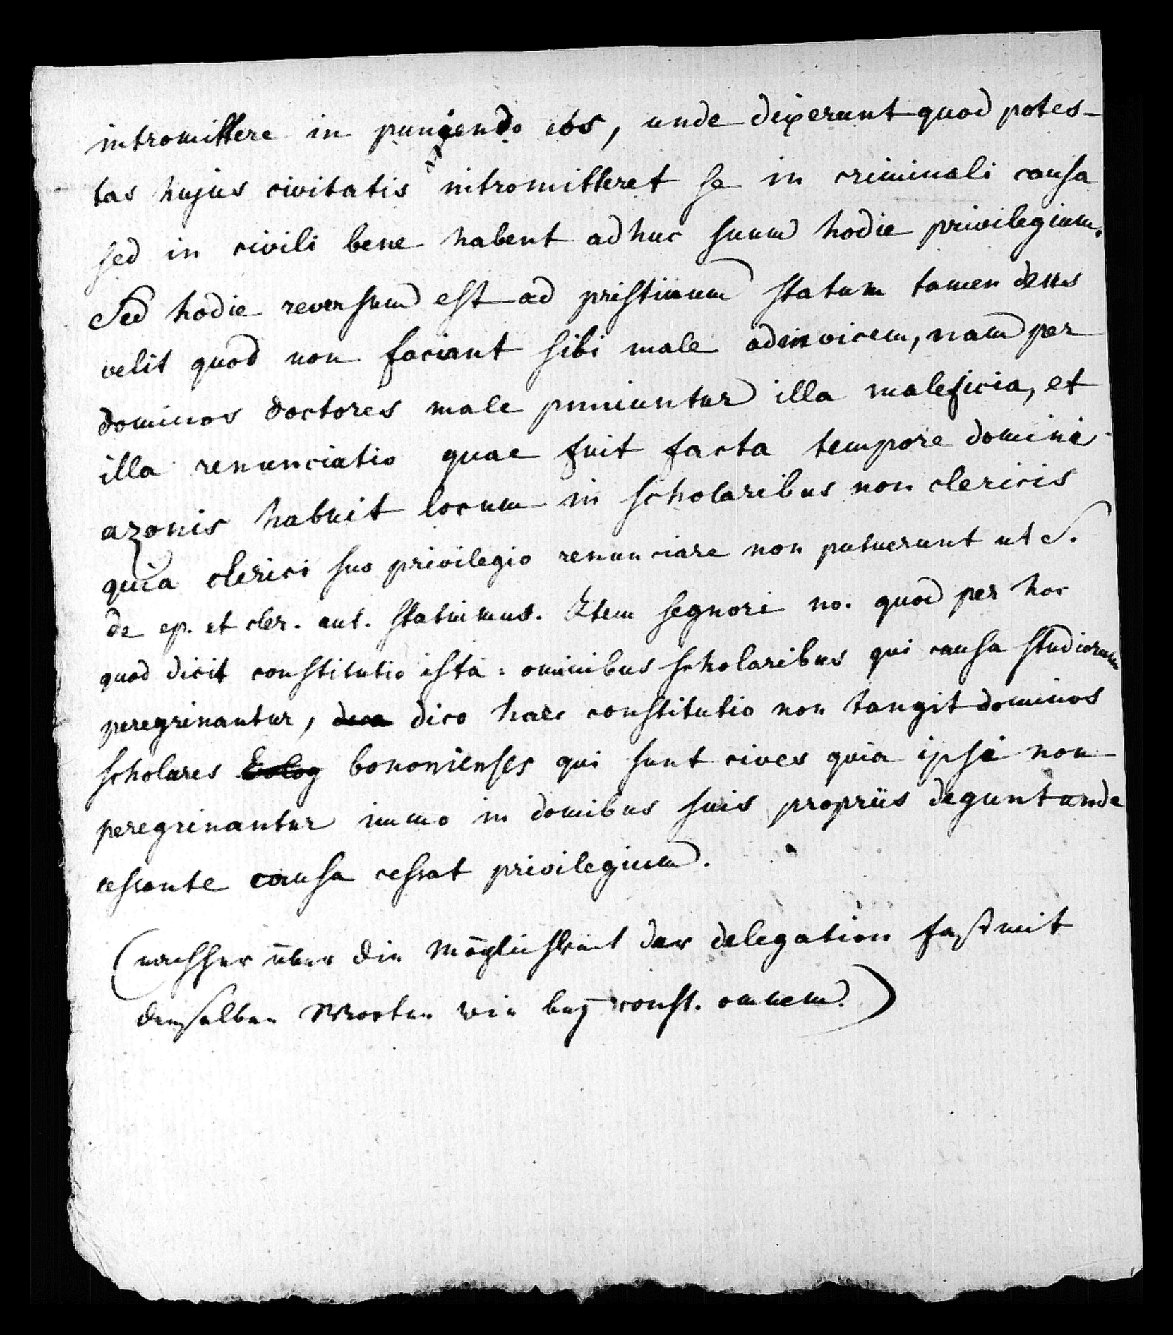 intromittere in puniendo eos, unde dixerunt quod potes-
tas hujus civitatis intromitteret se in criminali causa
sed in civili bene habent adhuc suum hodie privilegium.
Sed hodie reversum est ad pristinum statum tamen deus
velit quod non faciant sibi male adinvicem, nam per
dominos doctores male puniuntur illa maleficia, et
illa renunciatio quae fuit facta tempore domini
azonis habuit locum in scholaribus non clericis
quia clerici suo privilegio renunciare non potuerunt ut C.
de ep. et cler. aut. statuimus. Item segnori no. quod per hoc
quod dicit constitutio ista: omnibus scholaribus qui causa studiorum
peregrinantur, dico haec constitutio non tangit dominos
scholares bononienses qui sunt cives quia ipsi non
peregrinantur immo in domibus suis propriis degunt unde
cessante causa cessat privilegium.
(nachher über die Möglichkeit der delegation fast mit
denselben Worten wie bey const. omnem.)